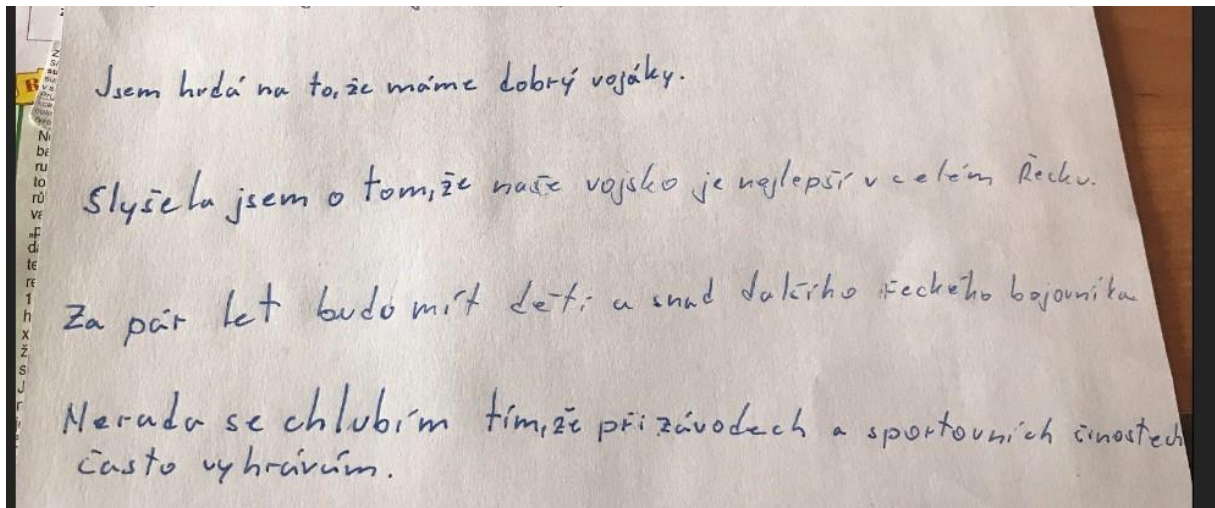 Jsem hrdá na to, že máme dobrý vojáky.
Slyšela jsem o tom, že naše vojsko je nejlepší v celém Řecku.
Za pár let budo mít děti a snad dalšího řeckého bojovníka
Nerada se chlubím tím, že při závodech a sportovních činostech
často vyhrávám.